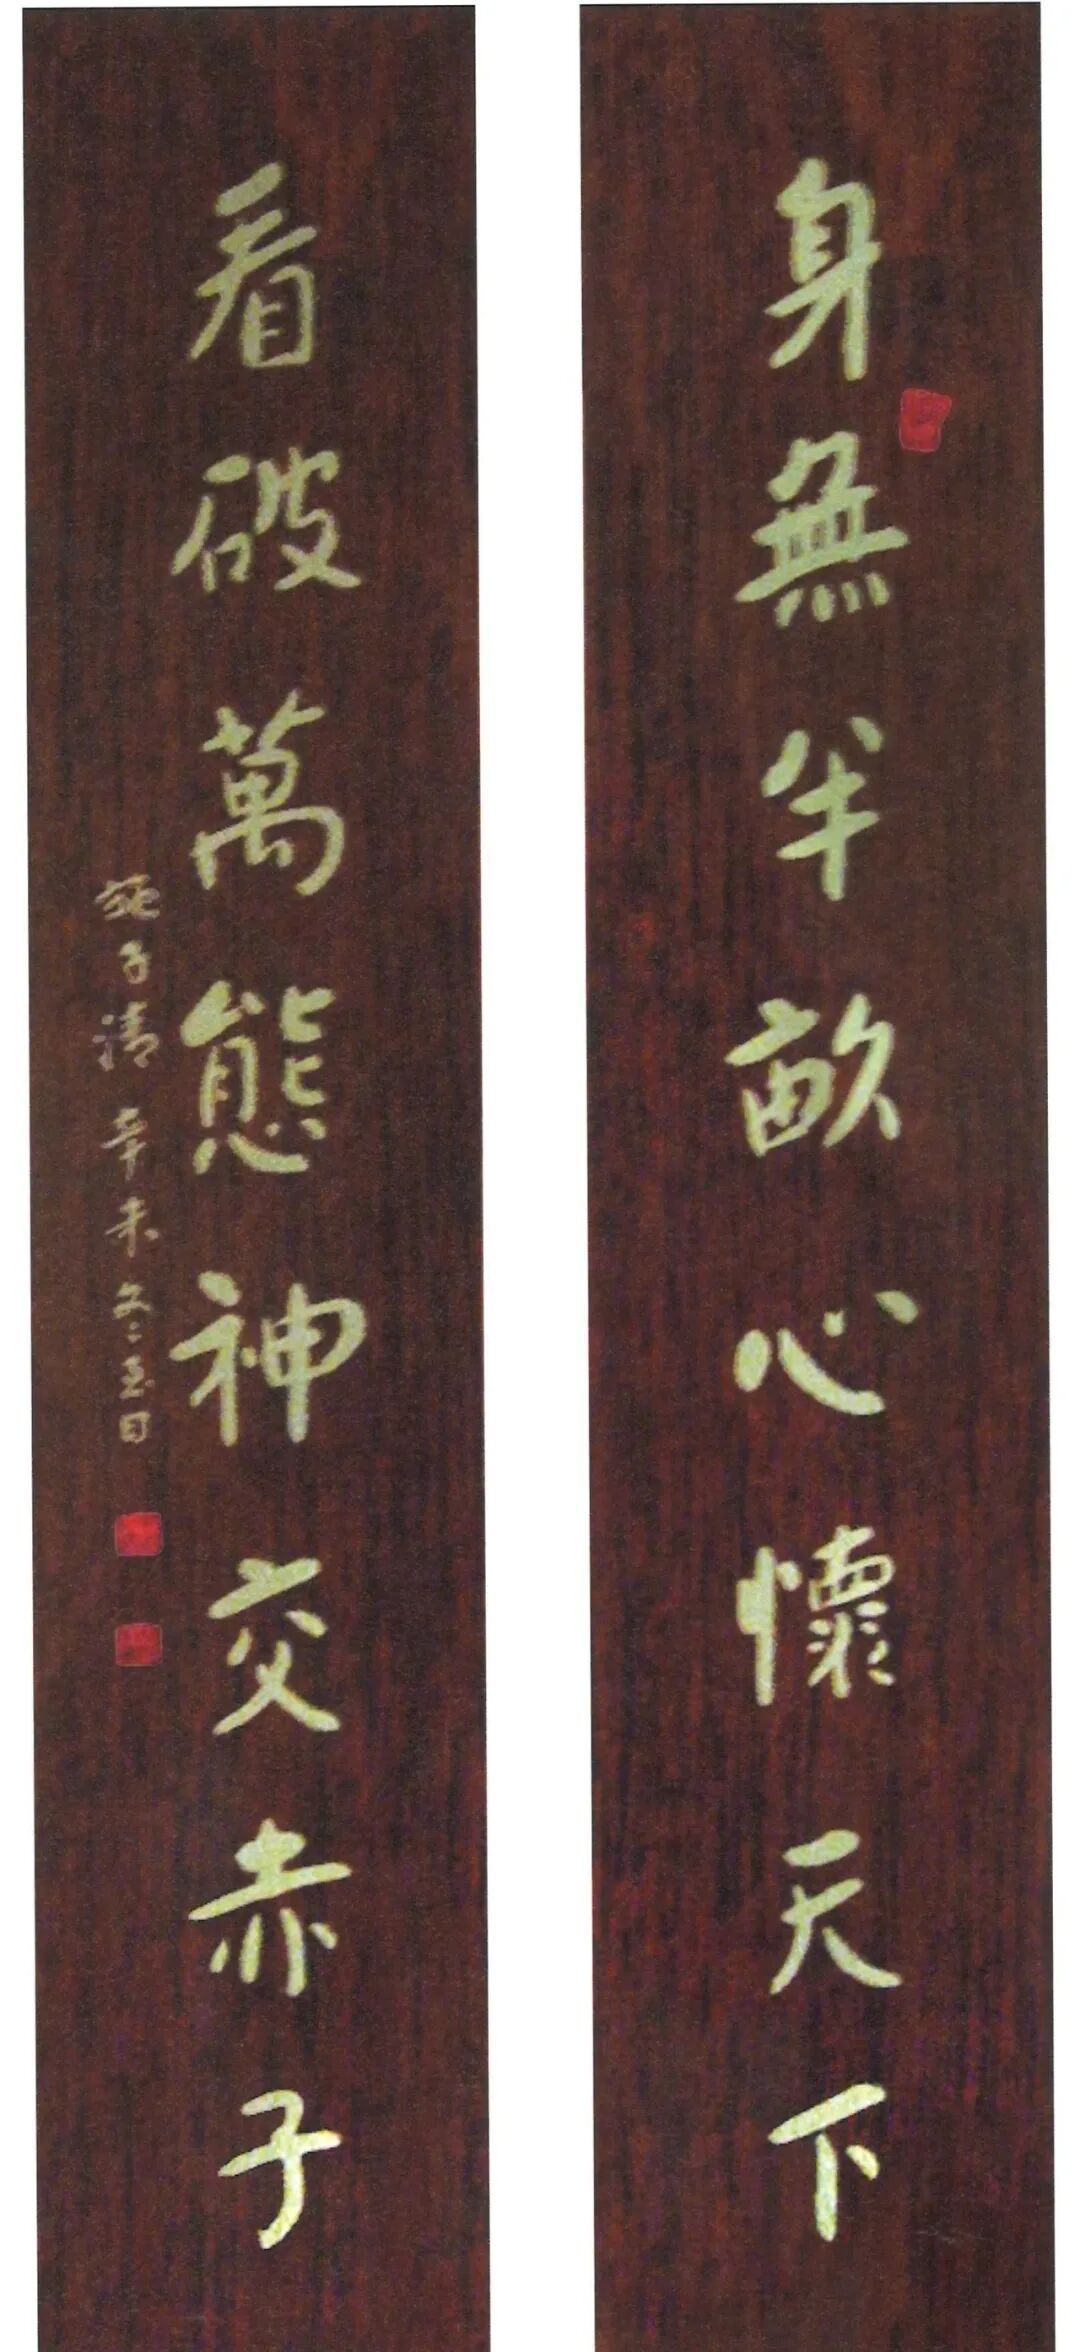 身無半畝心懷天下
看破萬態神交赤子
子清辛未冬至日